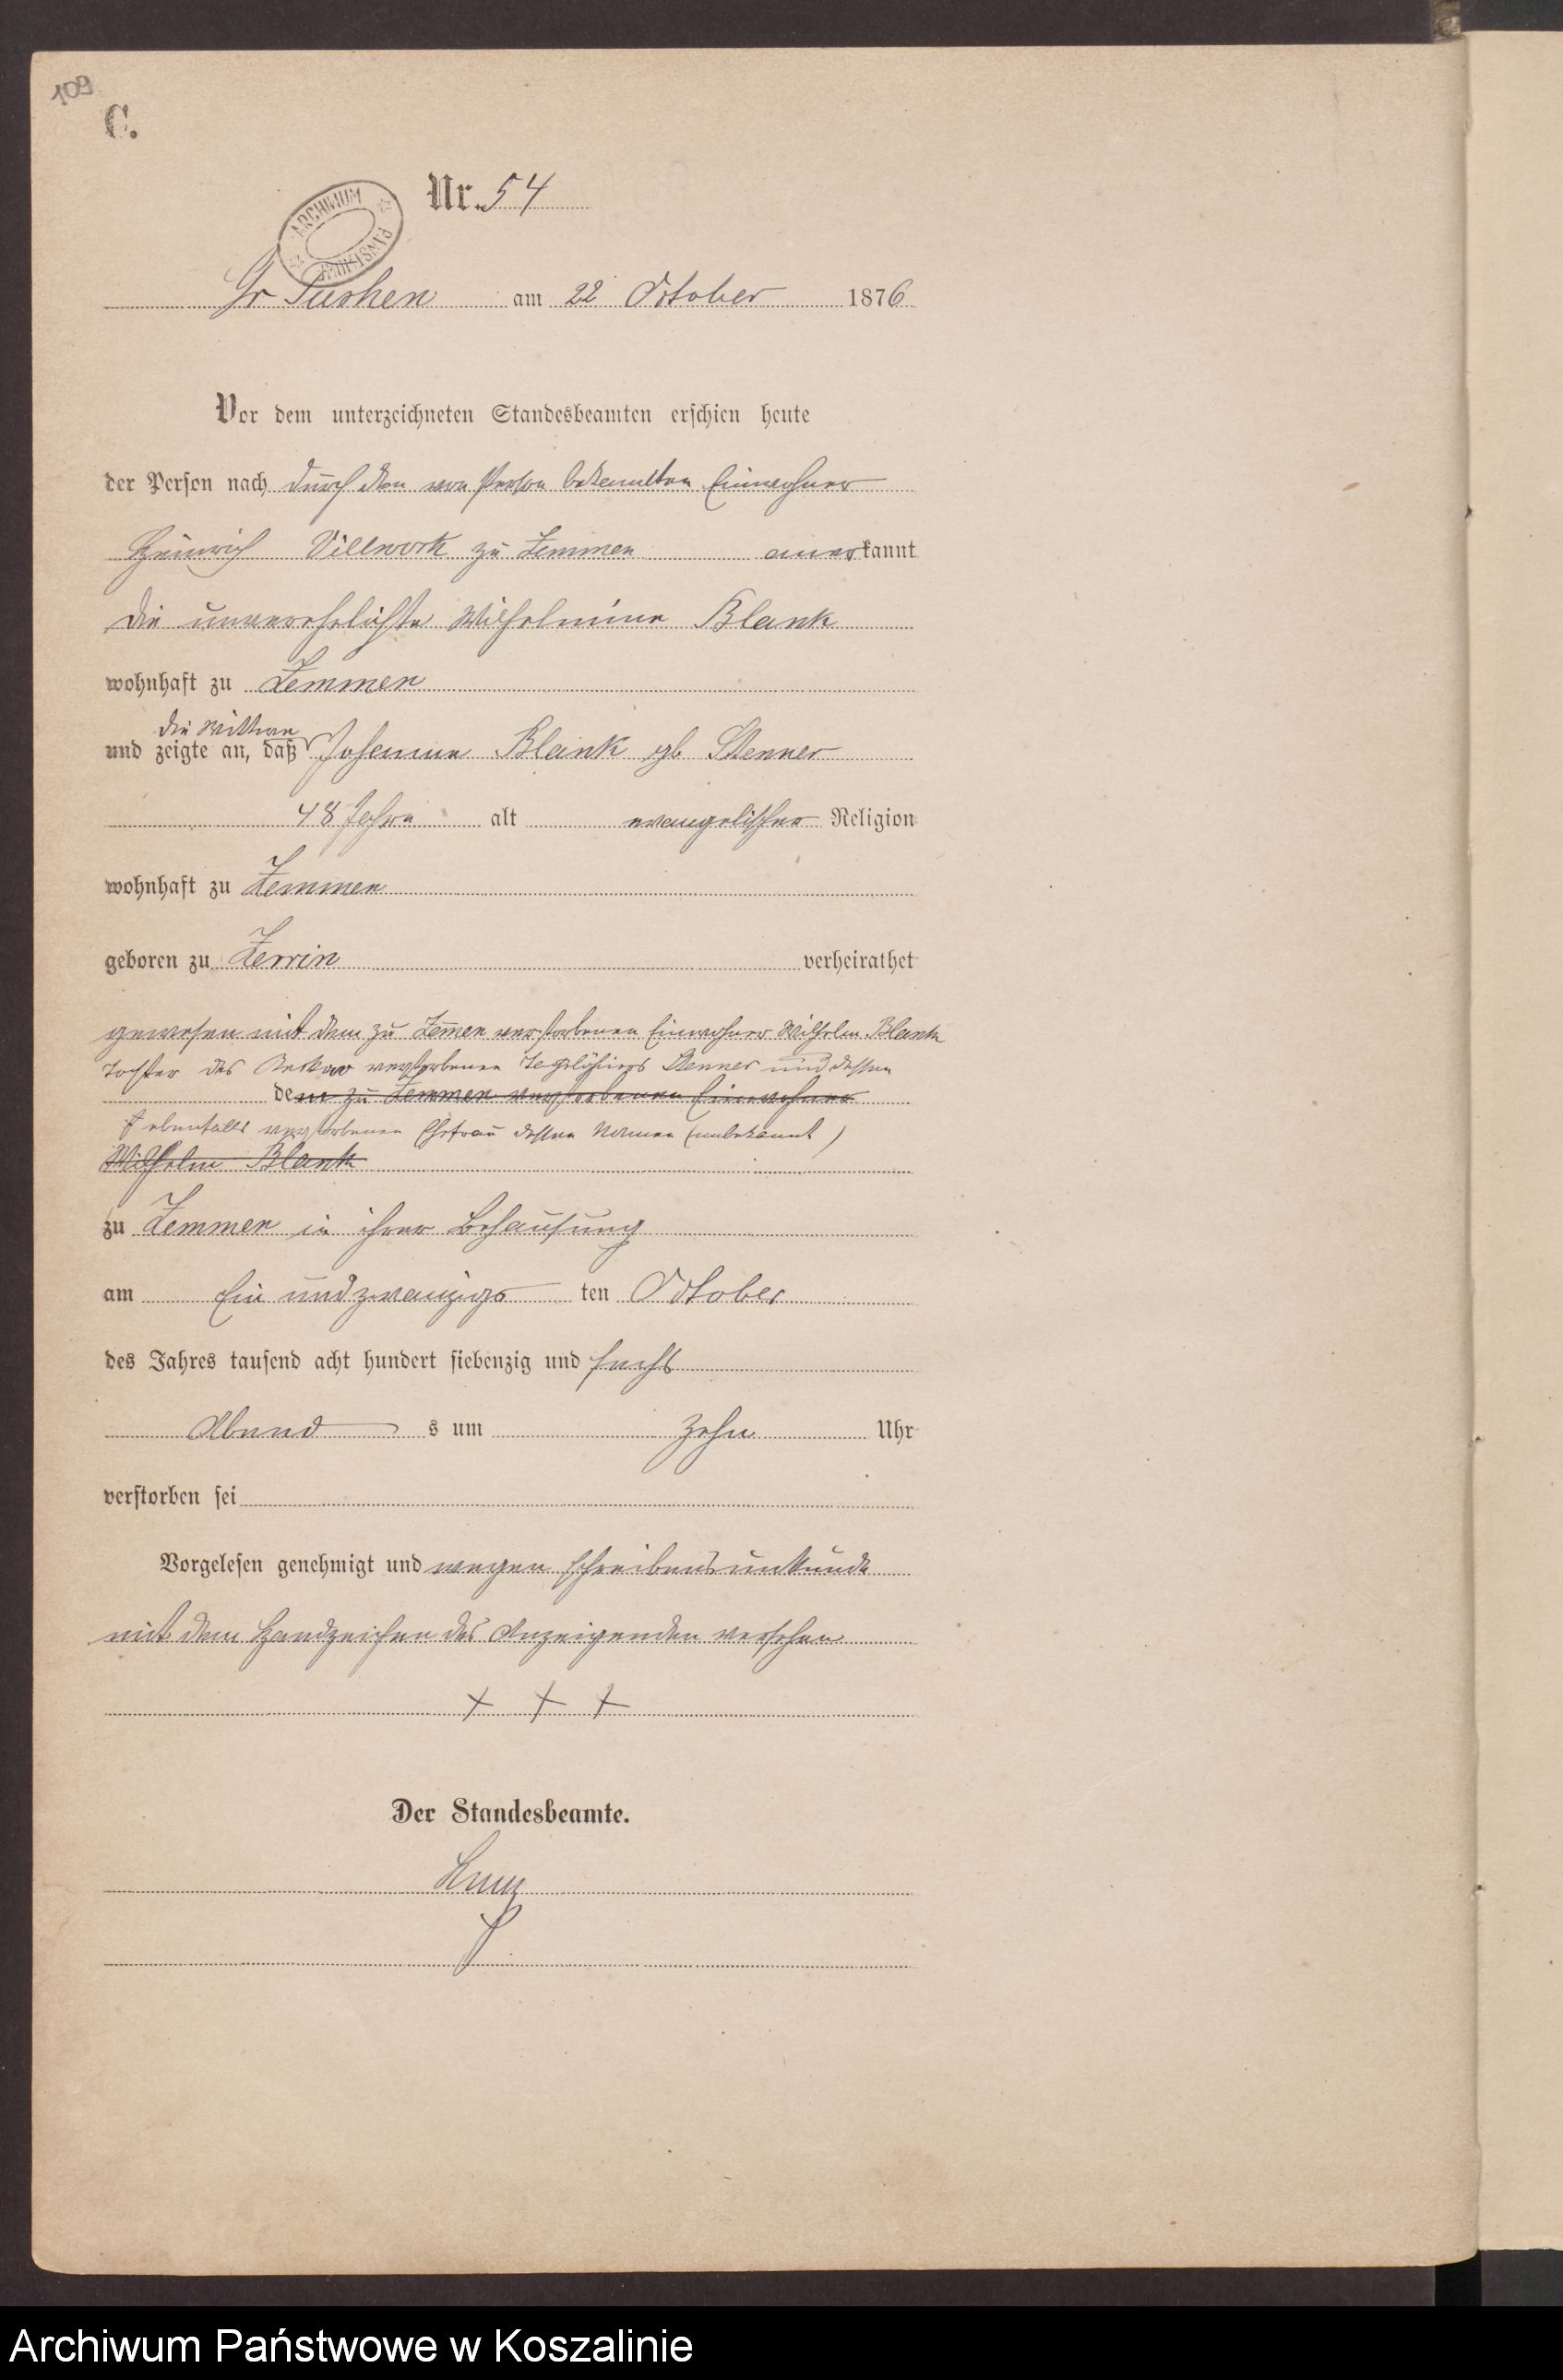 109
C.
Nr. 54
ARCHIWUM PAŃSTWOWE
Gr Tuchen am 22 October 1876
Vor dem unterzeichneten Standesbeamten erschien heute
der Person nach durch den von Person bekannten Einwohner
Heinrich Villwock zu Zemmen anerkannt
die unverehelichte Wilhelmine Blank
wohnhaft zu Zemmen
die Wittwe
und zeigte an, daß Johanne Blank gb Stenner
48 Jahre alt evangelischer Religion
wohnhaft zu Zemmen
geboren zu Zerrin verheirathet
gewesen mit dem zu Zemen verstorbenen Einwohner Wilhelm Blank
Tochter des verstorbenen Stenner und dessen
dem zu Zemmen verstorbenen Einwohner
ebenfalls verstorbenen Ehefrau dessen Namen (unbekannt)
Wilhelm Blank
zu Zemmen in ihrer Behausung
am Ein und zwanzigs ten October
des Jahres tausend acht hundert siebenzig und sechs
Abend s um zehn Uhr
verstorben sei
Vorgelesen genehmigt und wegen schreibensunkunde
mit dem Handzeichen des Anzeigenden versehen
+ + +
Der Standesbeamte.
Archiwum Państwowe w Koszalinie